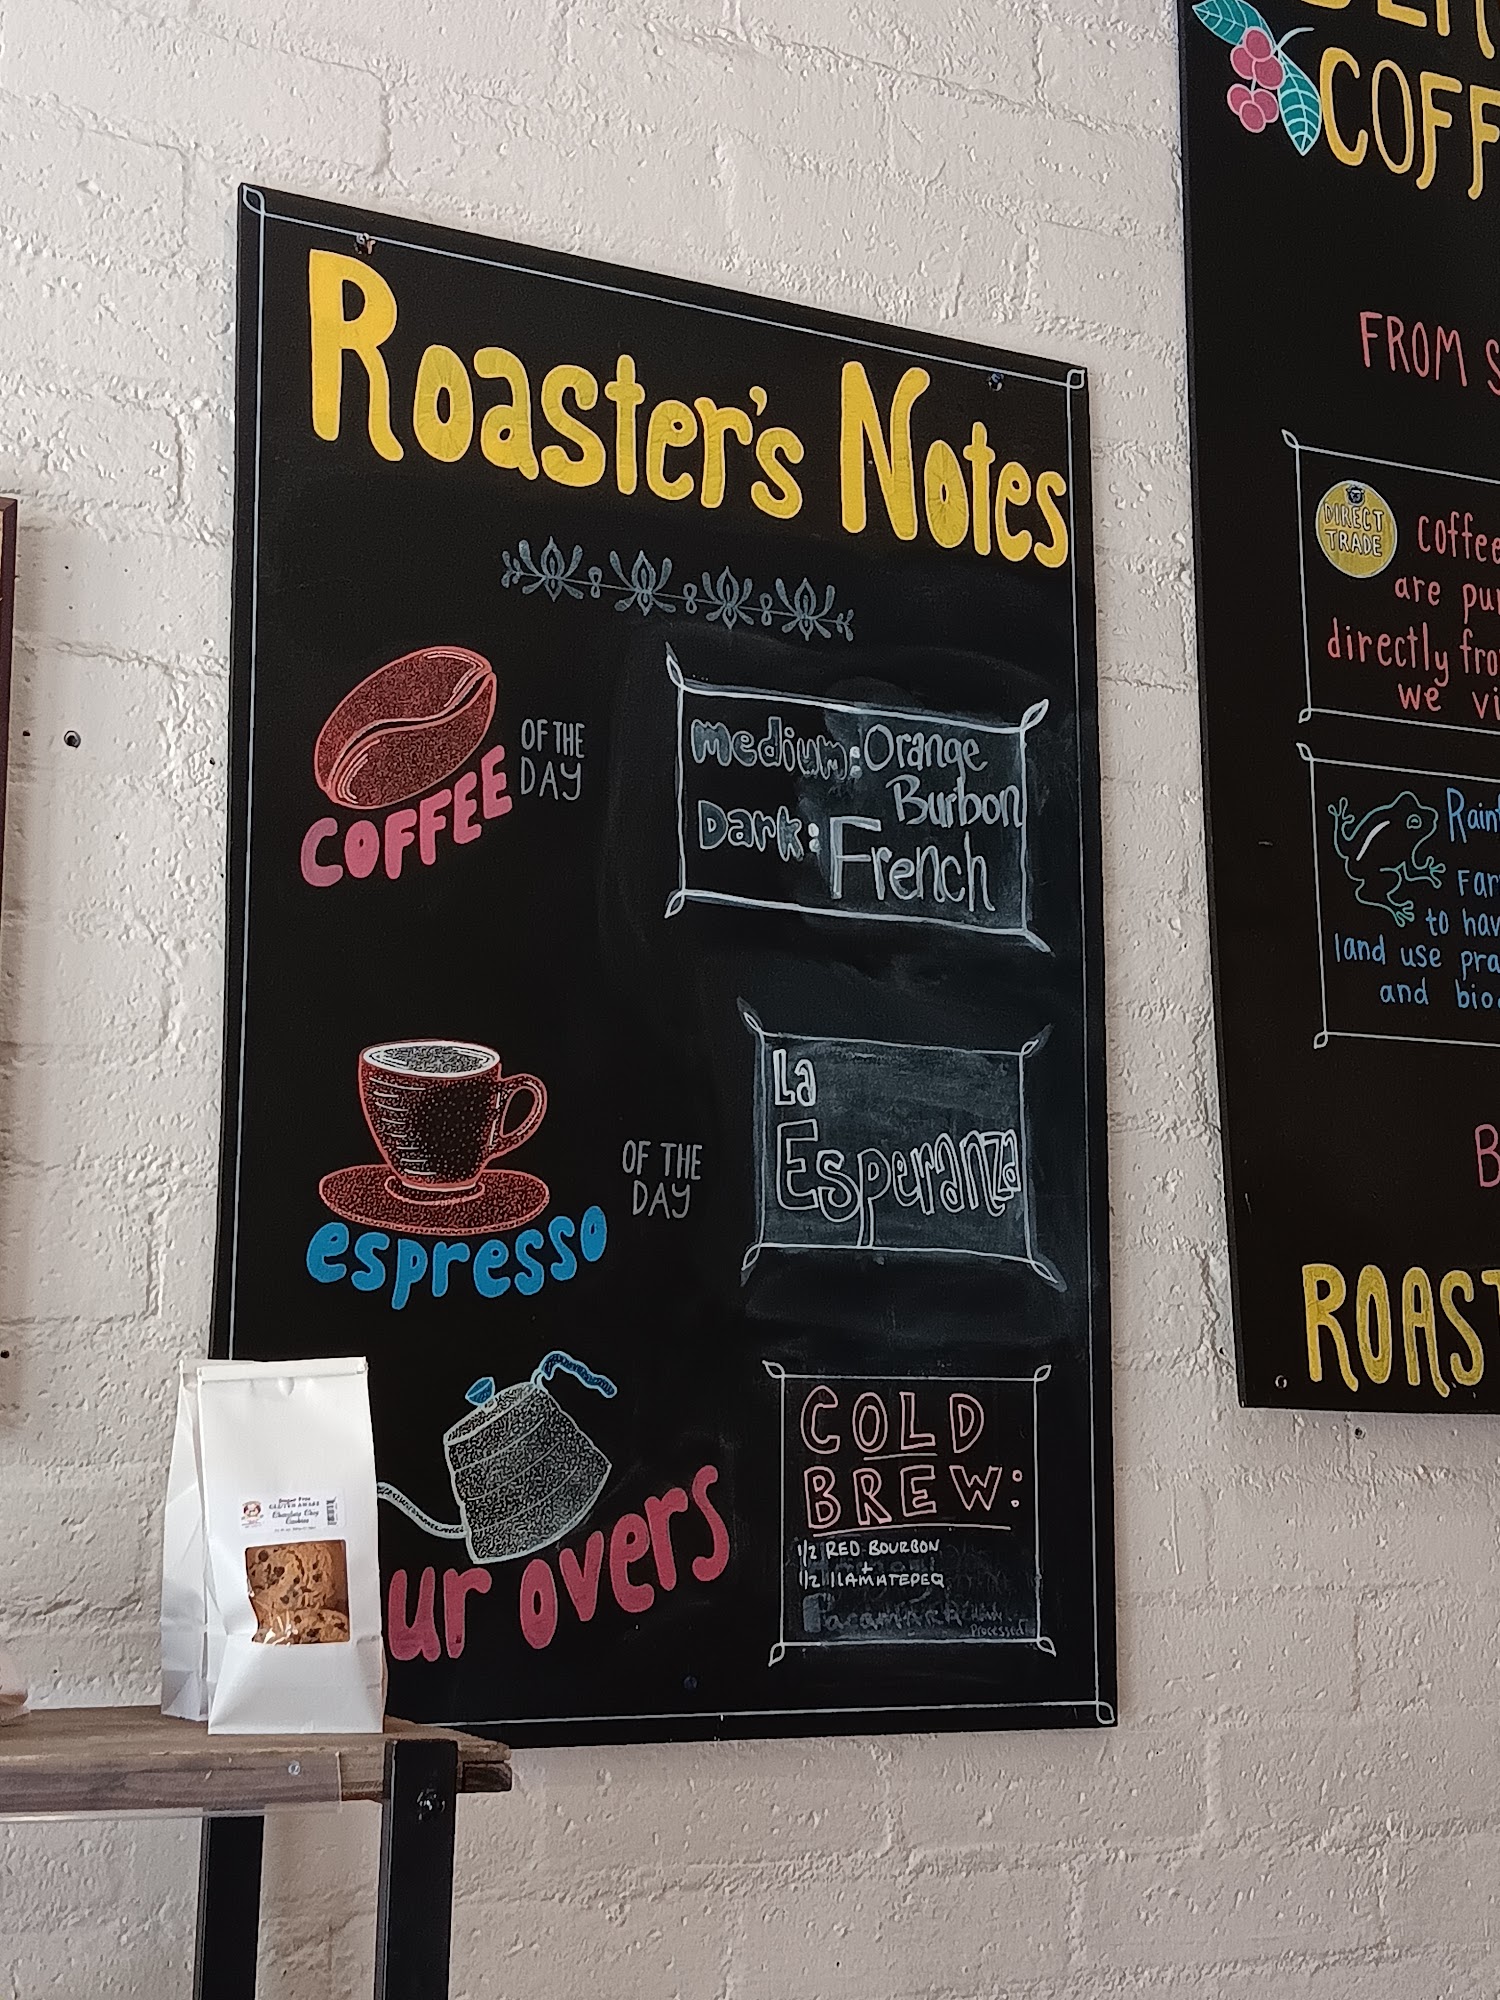 Roaster's Notes
COFFEE
OF THE
DAY
Medium: Orange
Burbon
Dark: French
espresso
OF THE
DAY
La
Esperanza
ur overs
COLD
BREW:
1/2 RED BOURBON
+
1/2 ILAMATEPEQ
Processed
Sugar Free
Chocolate Chip
Cookies
COFF
FROM S
DIRECT
TRADE
coffee
are pur
directly fro
we vi
Rain
Far
to hav
land use pra
and bio
B
ROAST